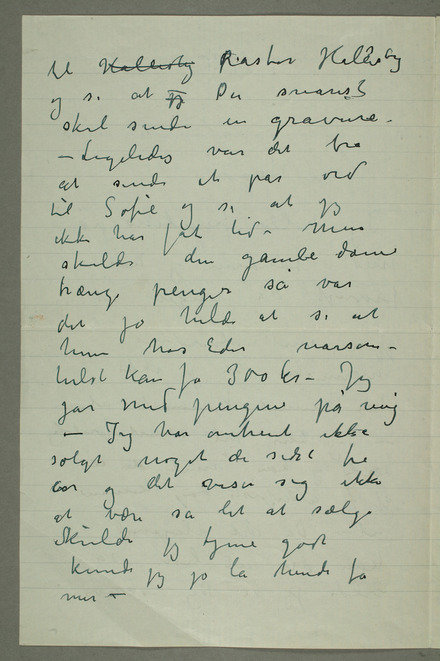 til Hallesby Pastor Hallesby
og si at jeg Du snarest
skal sende en gravure.
– Ligeledes var det bra
at sende et par ord
til Sofie og si at jeg
ikke har fåt tid – men
skulde den gamle dame
trænge penger så var
det jo heldi at si at
hun hos Eder narsom-
helst kan få 300 kr – Jeg
gar med pengene på mig
– Jeg har omtrent ikke
solgt noget de sidst tre
aar og det viser sig ikke
at være så let at sælge
Skulde jeg tjene godt
kunde jeg jo la hende få
mer –